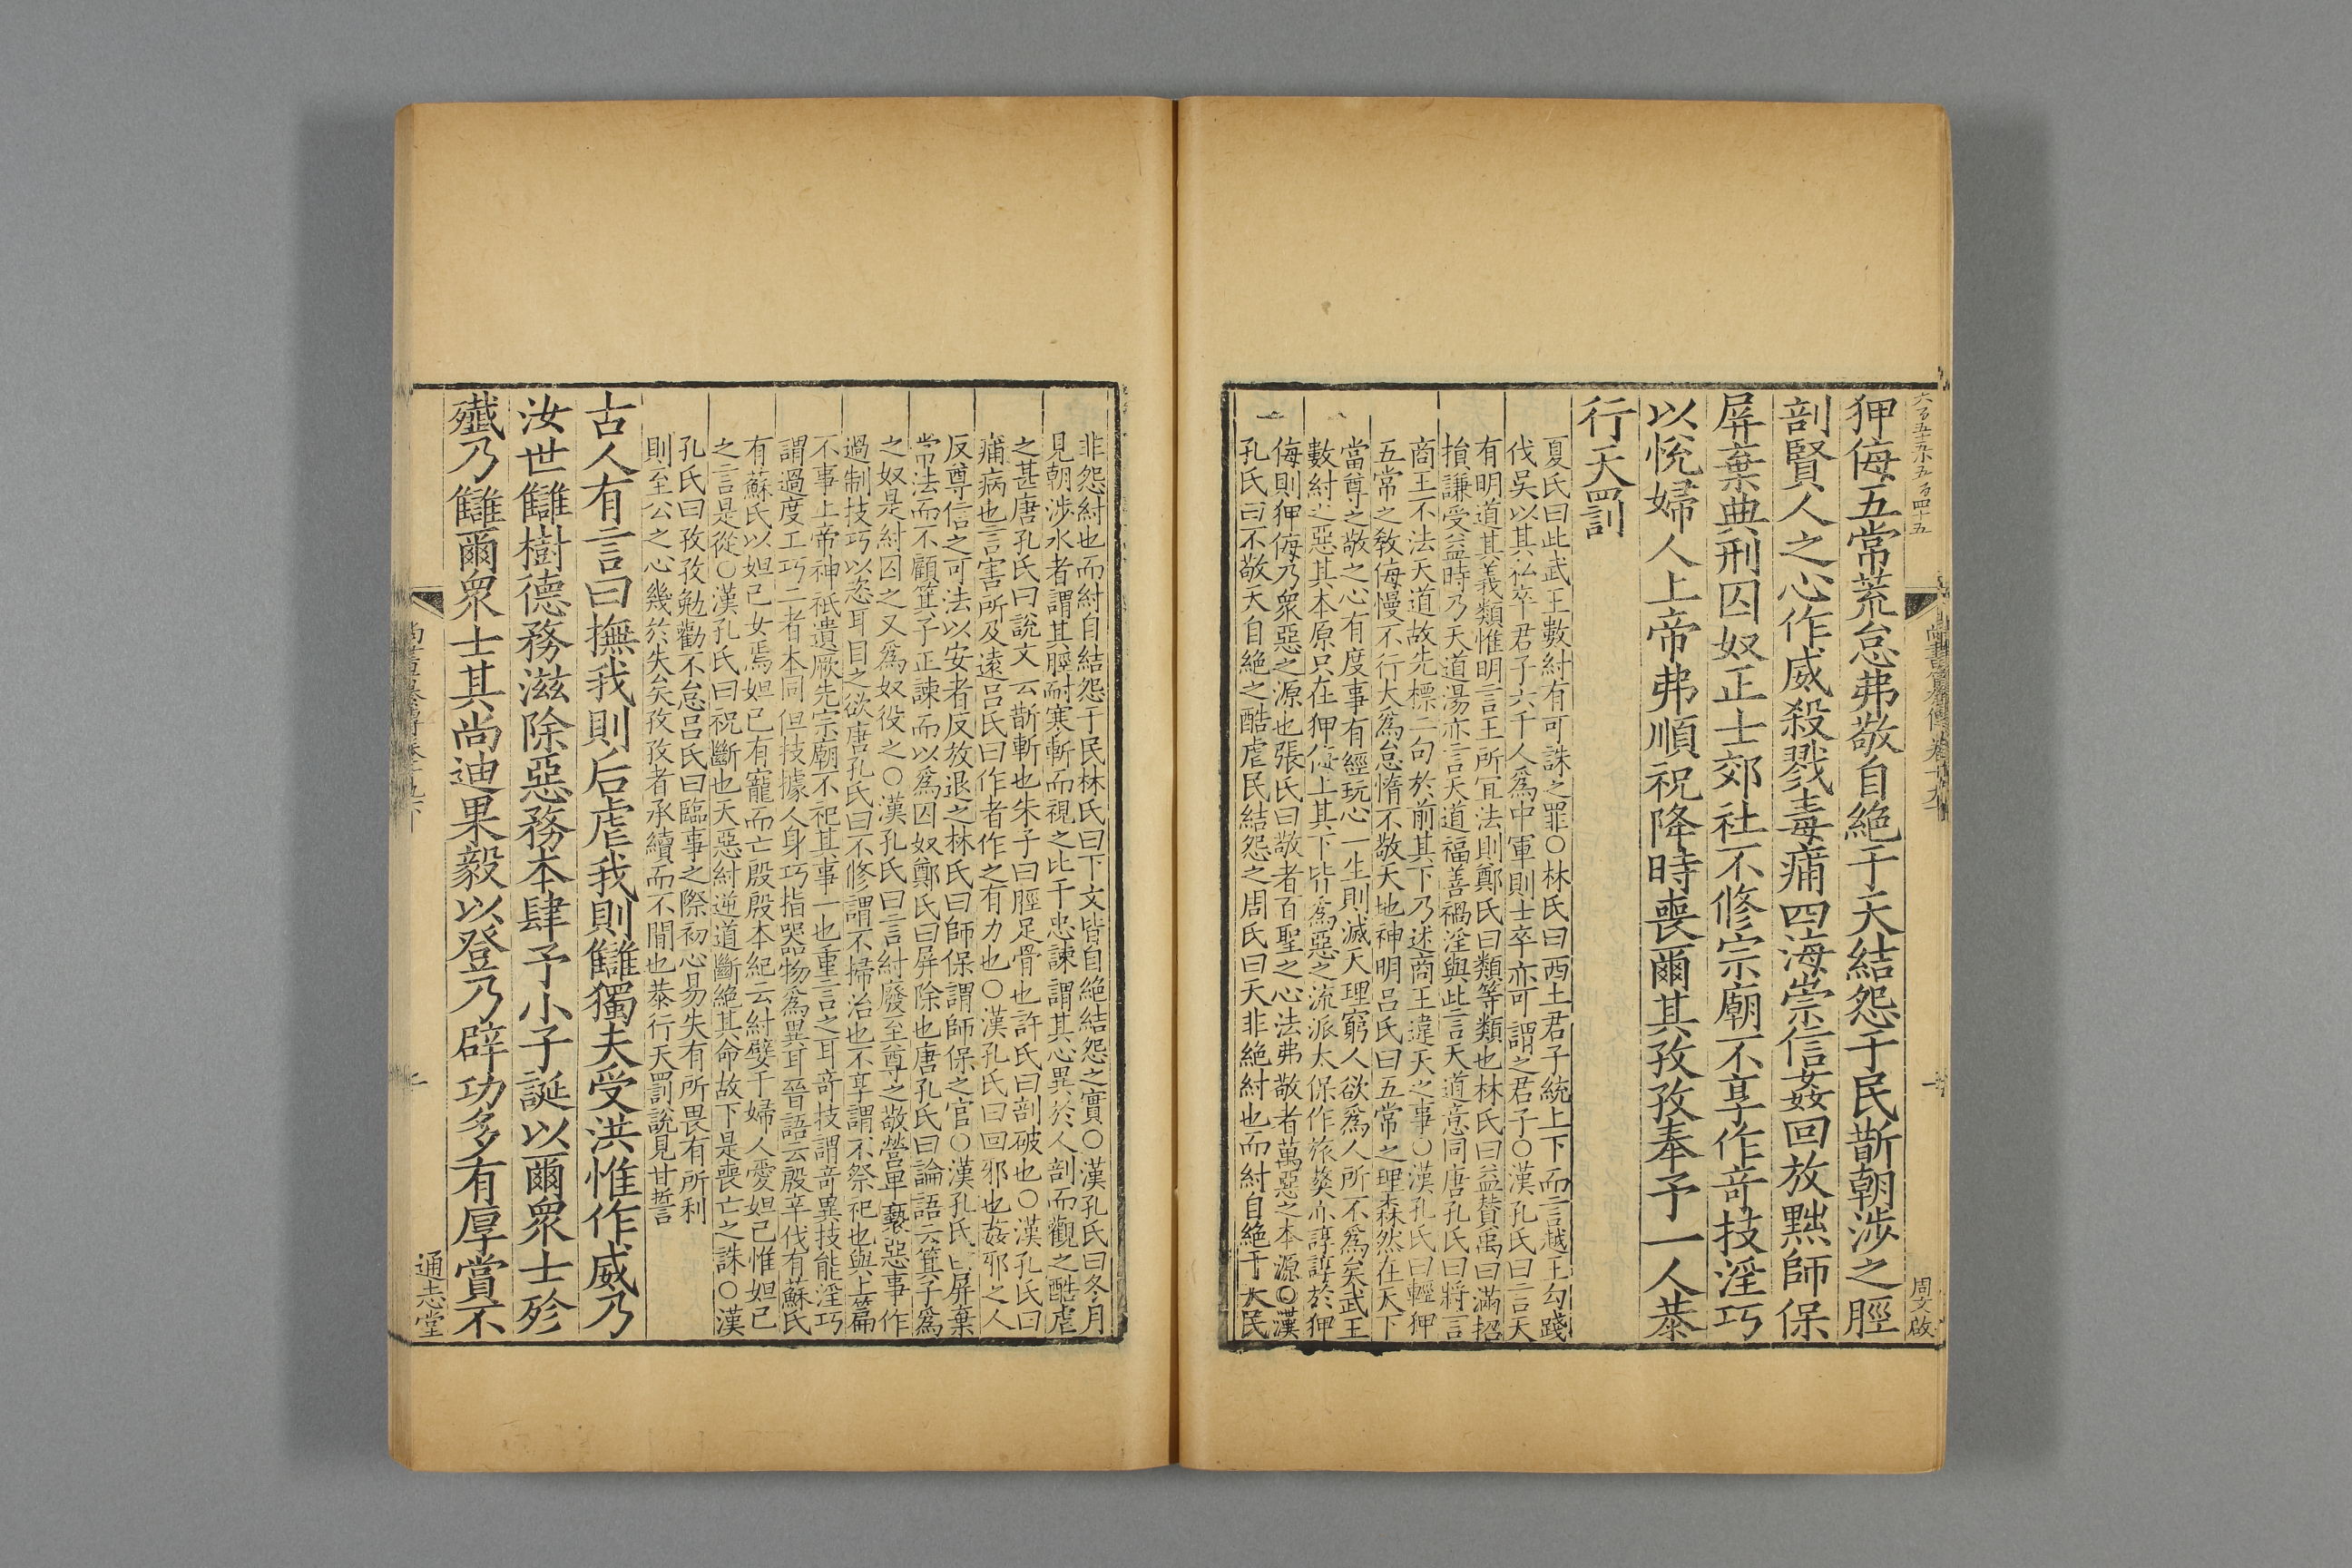 狎侮五常荒怠弗敬自絶于天結怨于民斮朝涉之脛
剖賢人之心作威殺戮毒痡四海崇信姦回放黜師保
屏棄典刑囚奴正士郊社不修宗廟不享作竒技淫巧
以悅婦人上帝弗順祝降時喪爾其孜孜奉予一人恭
行天罰
夏氏曰此武王數紂有可誅之罪○林氏曰西土君子統上下而言越王勾踐
伐吳以其私卒君子六千人爲中軍則士卒亦可謂之君子○漢孔氏曰言天
有明道其義類惟明言王所宜法則鄭氏曰類等類也林氏曰益賛禹曰滿招
損謙受益時乃天道湯亦言天道福善禍淫與此言天道意同唐孔氏曰將言
商王不法天道故先標二句於前其下乃述商王違天之事○漢孔氏曰輕狎
五常之敎侮慢不行大爲怠惰不敬天地神明吕氏曰五常之理森然在天下
當尊之敬之心有度事有經玩心一生則滅天理窮人欲爲人所不爲矣武王
數紂之惡其本原只在狎侮上其下皆爲惡之流派太保作旅獒亦諄諄於狎
侮則狎侮乃衆惡之源也張氏曰敬者百聖之心法弗敬者萬惡之本源○漢
孔氏曰不敬天自絶之酷虐民結怨之周氏曰天非絶紂也而紂自絶于天民
非怨紂也而紂自結怨于民林氏曰下文皆自絶結怨之實○漢孔氏曰冬月
見朝涉水者謂其脛耐寒斬而視之比干忠諫謂其心異於人剖而觀之酷虐
之甚唐孔氏曰說文云斮斬也朱子曰脛足骨也許氏曰剖破也○漢孔氏曰
痡病也言害所及遠吕氏曰作者作之有力也○漢孔氏曰回邪也姦邪之人
反尊信之可法以安者反放退之林氏曰師保謂師保之官○漢孔氏曰屏棄
常法而不顧箕子正諫而以爲囚奴鄭氏曰屏除也唐孔氏曰論語云箕子爲
之奴是紂囚之又爲奴役之○漢孔氏曰言紂廢至尊之敬營卑褻惡事作
過制技巧以恣耳目之欲唐孔氏曰不修謂不掃治也不享謂不祭祀也與上篇
不事上帝神祇遺厥先宗廟不祀其事一也重言之耳竒技謂竒異技能淫巧
謂過度工巧二者本同但技據人身巧指器物爲異耳晉語云殷辛伐有蘇氏
有蘇氏以妲己女焉妲己有寵而亡殷殷本紀云紂嬖于婦人愛妲己惟妲己
之言是從○漢孔氏曰祝斷也天惡紂逆道斷絶其命故下是喪亡之誅○漢
孔氏曰孜孜勉勸不怠吕氏曰臨事之際初心易失有所畏有所利
則至公之心幾於失矣孜孜者承續而不閒也恭行天罰說見甘誓
古人有言曰撫我則后虐我則讎獨夫受洪惟作威乃
汝世讎樹德務滋除惡務本肆予小子誕以爾衆士殄
殲乃讎爾衆士其尚迪果毅以登乃辟功多有厚賞不
周文啟
通志堂